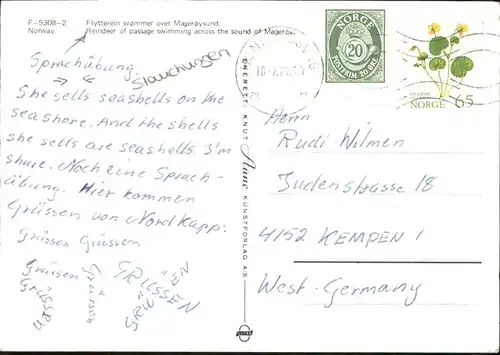 F-5308-2 Flytterein svømmer over Magerøysund.
Norway Reindeer of passage swimming across the sound of Magerøy.
Sprachübung
Stauchungen
She sells seashells on the
seashore. And the shells
she sells are seashells I'm
shure. Noch eine Sprach-
übung. Hier kommen
Grüssen von NordKapp:
Grüssen Grüssen
Grüssen
Grüssen
Grüssen
GRÜSSEN
GRÜSSEN
ENERETT: KNUT Aune KUNSTFORLAG A/S
NORGE
20
POSTFRIM. 20 ØRE
NORGE 65
Herrn
Rudi Wilmen
Judenstrasse 18
4152 KEMPEN 1
West-Germany